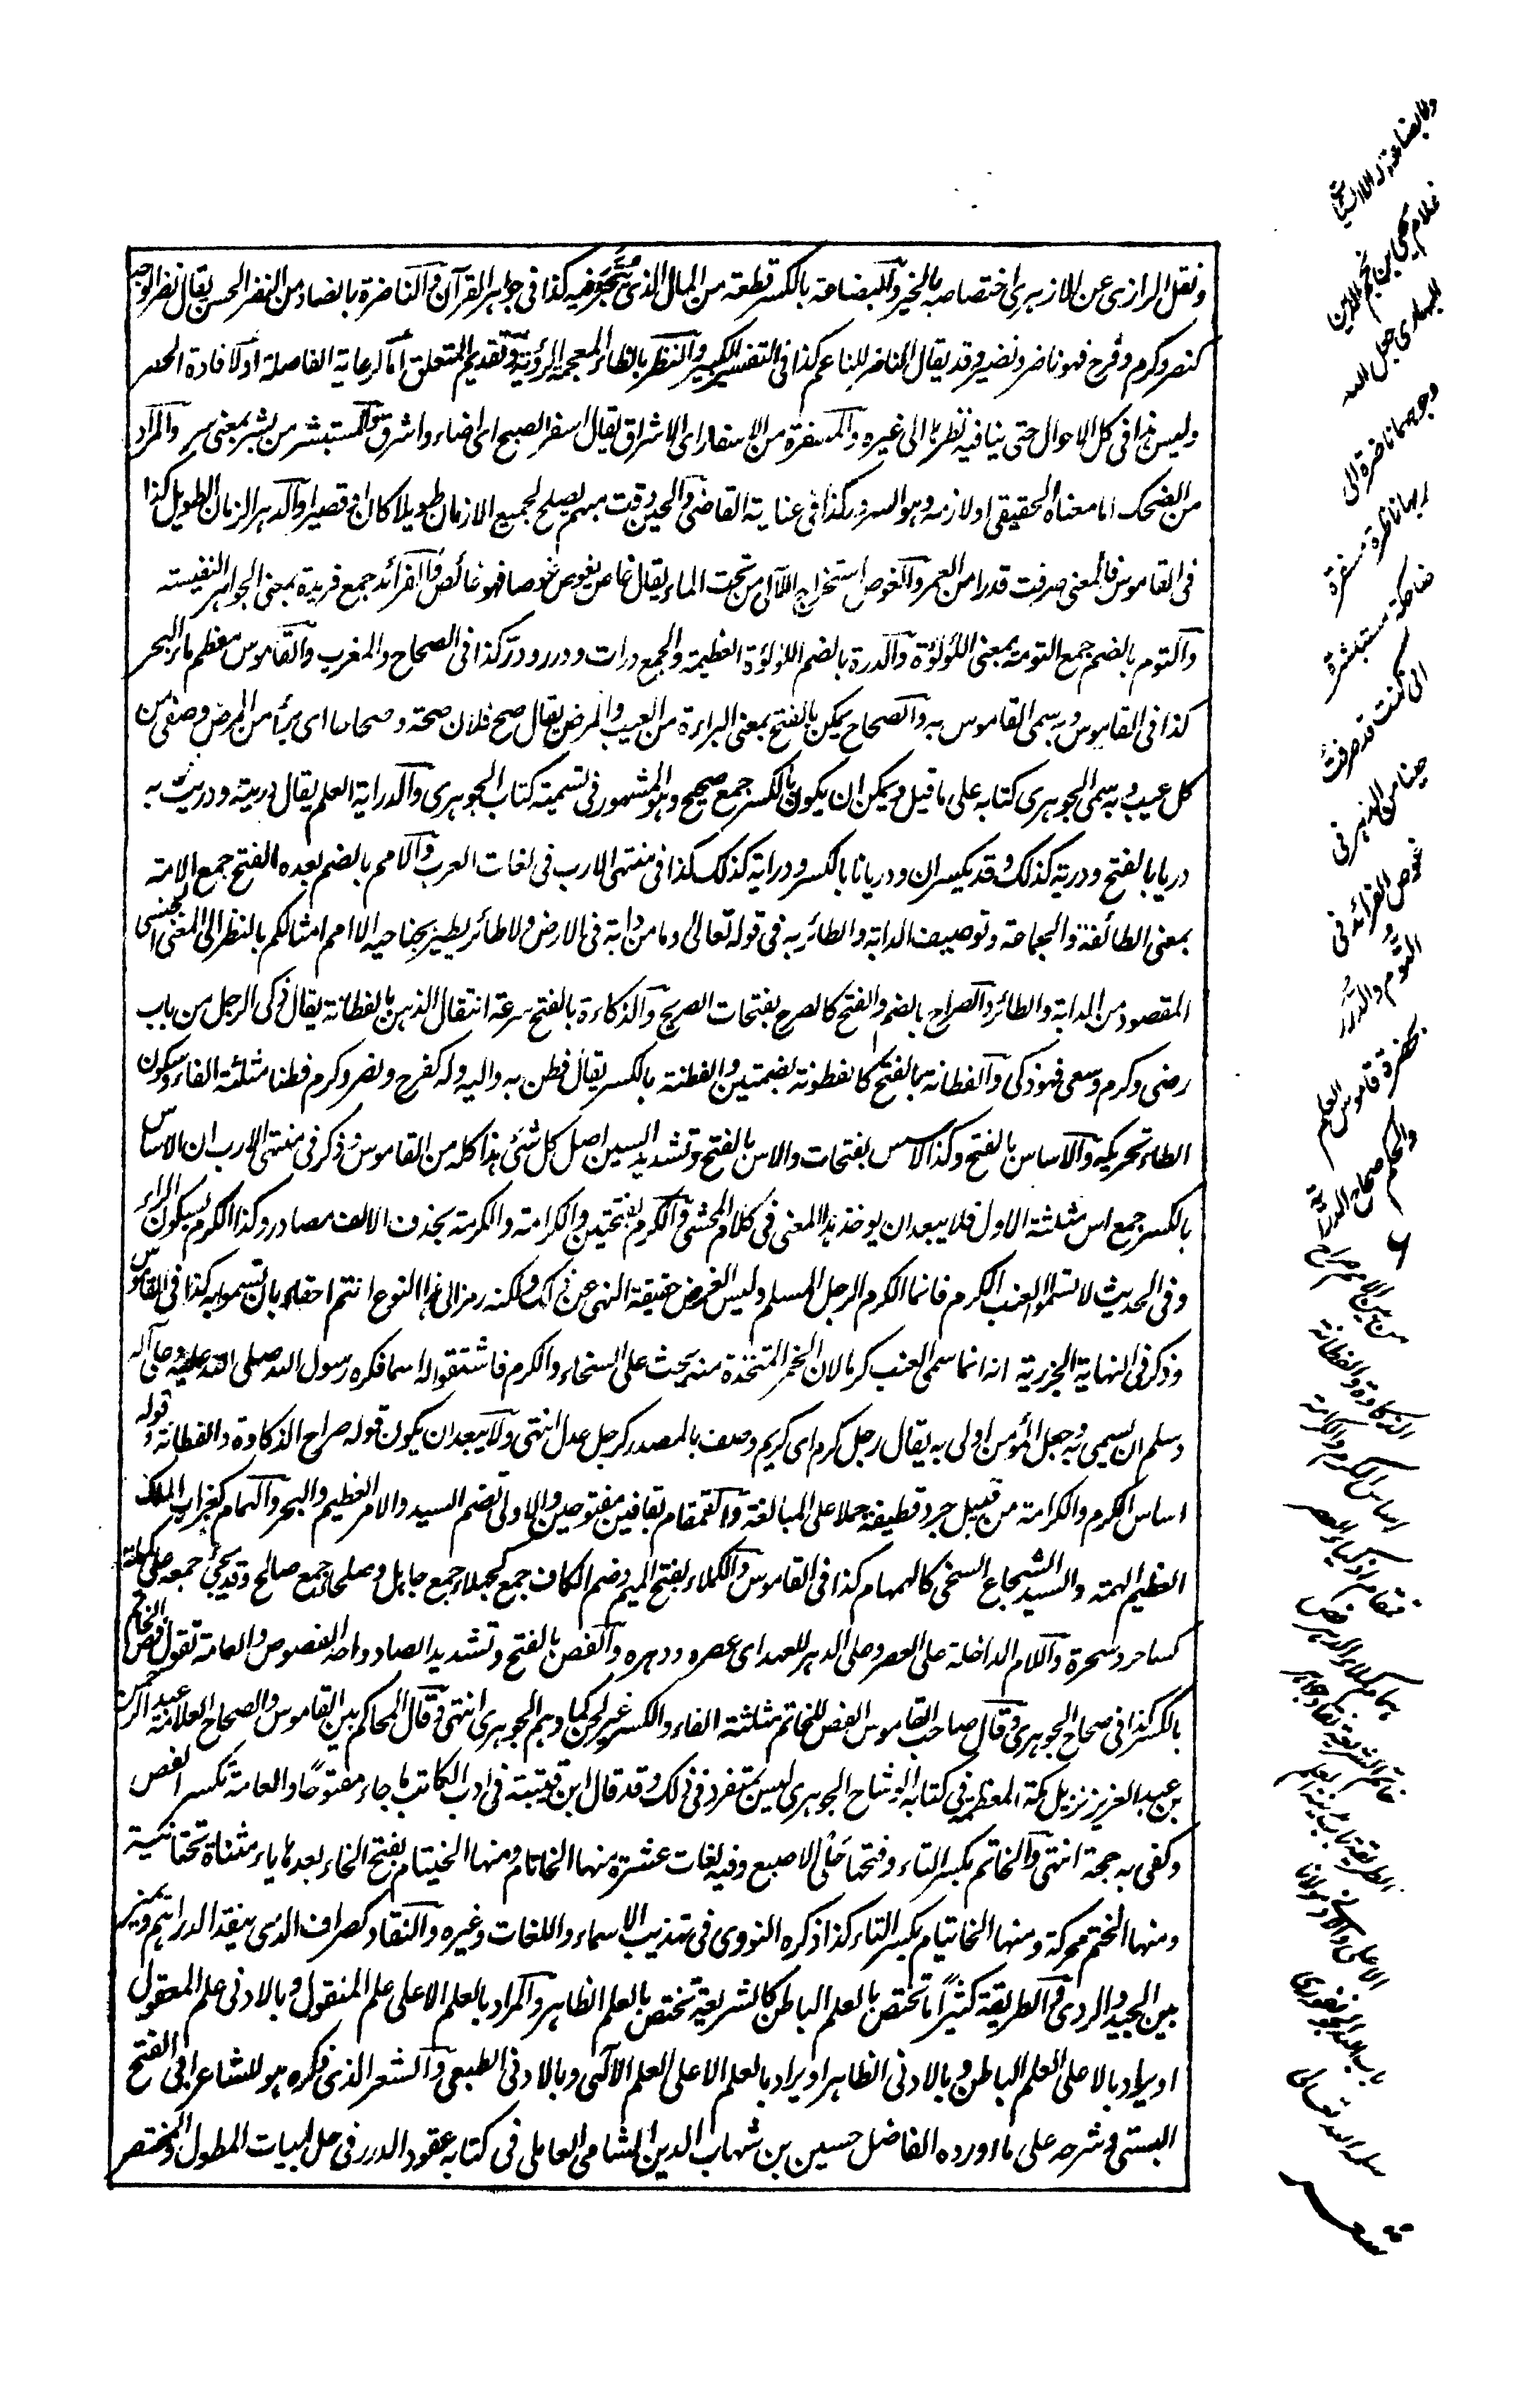 ونقل الرازى عن الازهرى اختصاصه بالخير والبضاعة بالكسر قطعة من المال الذى يتجر فيه كذا فى جواهر القرآن والناضرة بالضاد من النضر الحسن يقال نضر الوجه
كنصر وكرم وفرح فهو ناضر ونضير وقد يقال الناضر للناعم كذا فى التفسير الكبير والنظر بالظاء المعجمة الرؤية وتقديم المتعلق اما لرعاية الفاصلة او لافادة الحصر
وليس هذا فى كل الاحوال حتى ينافيه نظرها الى غيره والمسفرة من الاسفار اى الاشراق يقال اسفر الصبح اى اضاء واشرق والمستبشر من بشر بمعنى سر والمراد
من الضحك اما معناه الحقيقى او لازمه وهو السرور كذا فى عناية القاضى والحين وقت مبهم يصلح لجميع الازمان طويلا كان او قصيرا والدهر الزمان الطويل كذا
فى القاموس فالمعنى صرفت قدرا من العمر والغوص استخراج اللآلى من تحت الماء يقال غاص يغوص غوصا فهو غائص والفرائد جمع فريدة بمعنى الجواهر النفيسته
والتوم بالضم جمع التومة بمعنى اللؤلؤة والدرة بالضم اللؤلؤة العظيمة والجمع درات ودرر ودر كذا فى الصحاح والمغرب والقاموس معظم ماء البحر
كذا فى القاموس وبه سمى القاموس به والصحاح يمكن بالفتح بمعنى البراءة من العيب والمرض يقال صح فلان صحة وصحاحا اى برأ من المرض وصفى من
كل عيب وبه سمى الجوهرى كتابه على ما قيل ويمكن ان يكون بالكسر جمع صحيح وهو المشهور فى تسمية كتاب الجوهرى والدراية العلم يقال دريته ودريت به
دريا بالفتح ودرية كذلك وقد يكسران ودريانا بالكسر ودراية كذلك كذا فى منتهى الارب فى لغات العرب والامم بالضم بعده الفتح جمع الامة
بمعنى الطائفة والجماعة وتوصيف الدابة والطائر به فى قوله تعالى وما من دابة فى الارض ولا طائر يطير بجناحيه الا امم امثالكم بالنظر الى المعنى الجنسى
المقصود من الدابة والطائر والصراح بالضم والفتح كالصرح بفتحات الصريح والذكاءة بالفتح سرعة انتقال الذهن بالفطانة يقال ذكى الرجل من باب
رضى وكرم وسعى فهو ذكى والفطانة بالفتح كالفطونة بضمتين والفطنة بالكسر يقال فطن به واليه وله كفرح ونصر وكرم فطنا مثلثة الفاء وسكون
الطاء وتحريكه والاساس بالفتح وكذا الاسس بفتحات والاس بالفتح وتشديد السين اصل كل شئ هذا كله من القاموس وذكر فى منتهى الارب ان الاساس
بالكسر جمع اس مثلثة الاول فلا يبعد ان يوخذ هذا المعنى فى كلام المحشى والكرم بفتحتين والكرامة والكرمة بحذف الالف مصادر وكذا الكرم بسكون الراء
وفى الحديث لا تسموا العنب الكرم فانما الكرم الرجل المسلم وليس الغرض حقيقة النهى عن ذلك ولكنه رمز الى ان هذا النوع انتم احقاء بان تسموا به كذا فى القاموس
وذكر فى النهاية الجزرية انه انما سمى العنب كرما لان الخمر المتخذة منه يحث على السخاء والكرم فاشتقوا له اسما فكره رسول الله صلى الله عليه وعلى آله
وسلم ان يسمى به وجعل المؤمن اولى به يقال رجل كرم اى كريم وصف بالمصدر كرجل عدل انتهى ولا يبعد ان يكون قوله صراح الذكاوة والفطانة وقوله
اساس الكرم والكرامة من قبيل جرد قطيفة حملا على المبالغة والقمقام بقافين مفتوحين والاولى تضم السيد والامر العظيم والبحر والهمام كغراب الملك
العظيم الهمة والسيد الشجاع السخى كالهمهام كذا فى القاموس والكملاء بفتح الميم وضم الكاف جمع كجهلاء جمع جاهل وصلحاء جمع صالح وقد يجئ جمعه على كملة
كساحر وسحرة واللام الداخلة على العصر وعلى الدهر للعهد اى عصره ودهره والفص بالفتح وتشديد الصاد واحد الفصوص والعامة تقول فص الخاتم
بالكسر كذا فى صحاح الجوهرى وقال صاحب القاموس الفص للخاتم مثلثة الفاء والكسر غير لحن كما وهم الجوهرى انتهى وقال المحاكم بين القاموس والصحاح العلامة عبد الرحمن
بن عبد العزيز نزيل مكة المعظمة فى كتابه الوشاح الجوهرى ليس بمتفرد فى ذلك وقد قال ابن قتيبة فى ادب الكاتب ما جاء مفتوحا والعامة تكسر الفص
وكفى به حجة انتهى والخاتم بكسر التاء وفتحها حلى الاصبع وفيه لغات عشرة منها الخاتام ومنها الخيتام بفتح الخاء بعدها ياء مثناة تحتانية
ومنها الختم محركة ومنها الخاتيام بكسر التاء كذا ذكره النووى فى تهذيب الاسماء واللغات وغيره والنقاد كصراف الذى ينقد الدراهم ويميز
بين الجيد والردى والطريقة كثيرا ما تختص بالعلم الباطن كالشريعة تختص بالعلم الظاهر والمراد بالعلم الاعلى علم المنقول وبالادنى علم المعقول
او يراد بالاعلى العلم الباطن وبالادنى الظاهر او يراد بالعلم الاعلى العلم الآلهى وبالادنى الطبعى والشعر الذى ذكره هو للشاعر ابى الفتح
البستى وشرحه على ما اورده الفاضل حسين بن شهاب الدين الشامى العاملى فى كتابه عقود الدرر فى حل ابيات المطول والمختصر
غلام يحيى بن نجم الدين
البهارى جعل الله
وجوهنا ناضرة الى
ربها ناظرة مسفرة
ضاحكة مستبشرة
انى كنت قد صرفت
حينا من الدهر فى
غوص الفرائد فى
التوم والدرر
بحضرة قاموس العلم
والحكم صحاح الدراية
من بين الامم صراح
الذكاوة والفطانة
اساس الكرم والكرامة
قمقام اذكياء العصر
همام كملاء الدهر فص
خاتم الشريعة نقاد جواهر
شعر